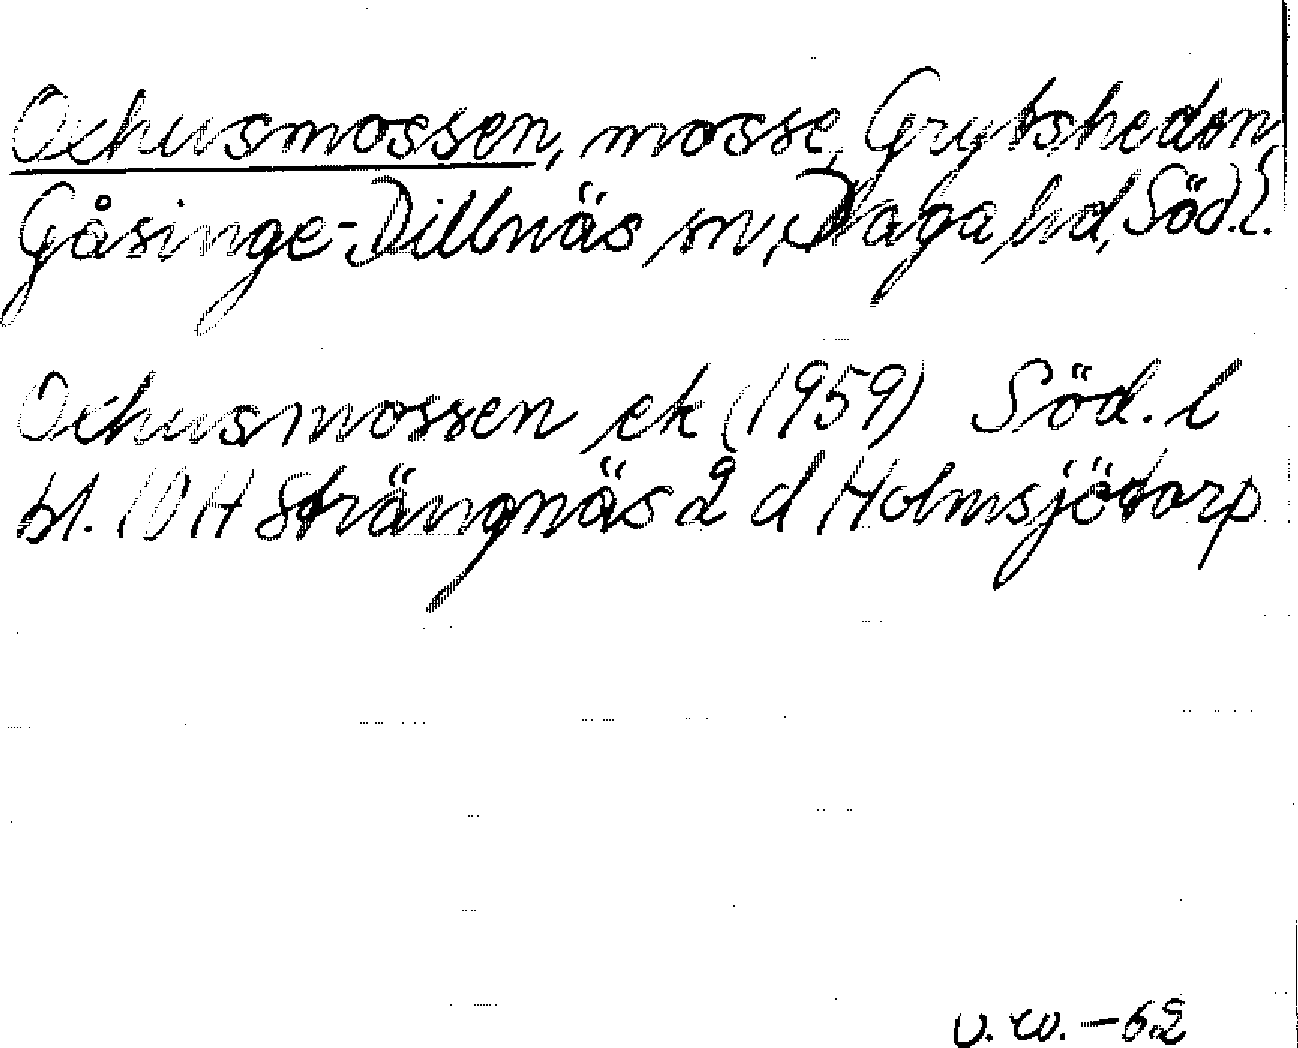 Oxhusmossen, mosse, Grytshedon,
Gåsinge-Dillnäs sn, Daga hd, Söd. l.
Oxhusmossen ek (1959) Söd. l
bl. 10 H Strängnäs 2 d Holmsjötorp
V. W. -62